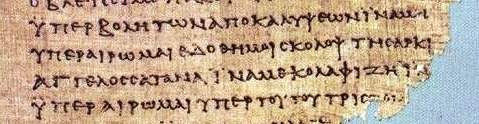 ΫΠΕΡΒΟΛΗΤΩΝΑΠΟΚΑΛΥΨΕΩΝΪΝΑΜΗ
ΥΠΕΡΑΙΡΩΜΑΙΕΔΟΘΗΜΟΙΣΚΟΛΟΨΤΗΣΑΡΚΙ
ΑΓΓΕΛΟΣΣΑΤΑΝΑΪΝΑΜΕΚΟΛΑΦΙΖΗ
ΫΠΕΡΑΙΡΩΜΑΙΥΠΕΡΤΟΥΤΟΥΤΡΙΣ